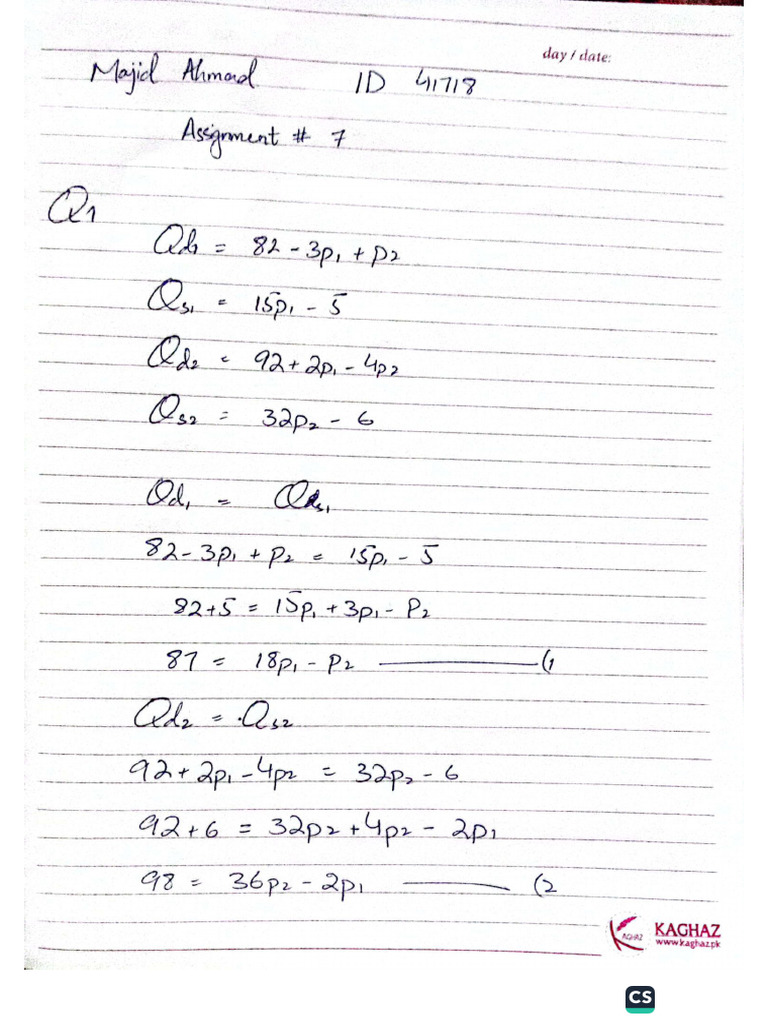 day / date:
Majid Ahmad ID 41718
Assignment # 7
Q1
Qd1 = 82 - 3p1 + p2
Qs1 = 15p1 - 5
Qd2 = 92 + 2p1 - 4p2
Qs2 = 32p2 - 6
Qd1 = Qs1
82 - 3p1 + p2 = 15p1 - 5
82 + 5 = 15p1 + 3p1 - P2
87 = 18p1 - P2 ———— (1
Qd2 = Qs2
92 + 2p1 - 4p2 = 32p2 - 6
92 + 6 = 32p2 + 4p2 - 2p1
98 = 36p2 - 2p1 ———— (2
KAGHAZ
www.kaghaz.pk
CS